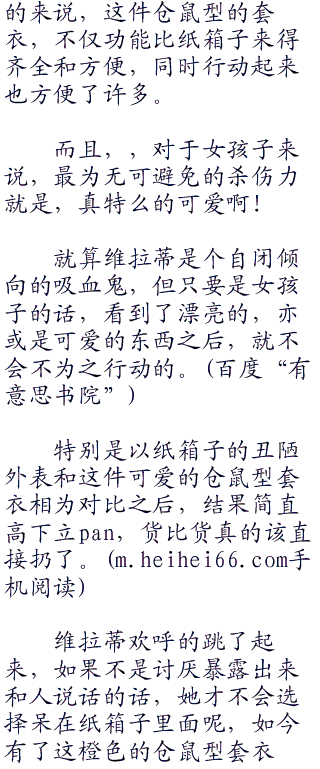 的来说，这件仓鼠型的套
衣，不仅功能比纸箱子来得
齐全和方便，同时行动起来
也方便了许多。
而且，，对于女孩子来
说，最为无可避免的杀伤力
就是，真特么的可爱啊！
就算维拉蒂是个自闭倾
向的吸血鬼，但只要是女孩
子的话，看到了漂亮的，亦
或是可爱的东西之后，就不
会不为之行动的。(百度“有
意思书院”)
特别是以纸箱子的丑陋
外表和这件可爱的仓鼠型套
衣相为对比之后，结果简直
高下立pan，货比货真的该直
接扔了。(m.heihei66.com手
机阅读)
维拉蒂欢呼的跳了起
来，如果不是讨厌暴露出来
和人说话的话，她才不会选
择呆在纸箱子里面呢，如今
有了这橙色的仓鼠型套衣